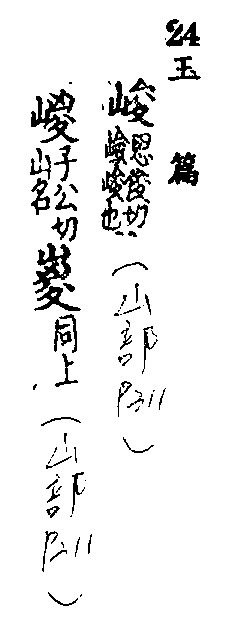 24玉篇
峻思俊切嶮峻也(山部P211)
嵕子公切山名嵏同上(山部P211)